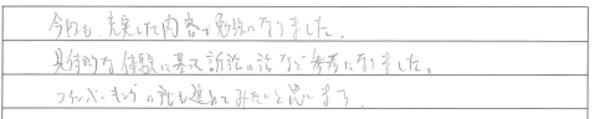 今回も、充実した内容で勉強になりました。
具体的な体験に基く訴訟の話など参考になりました。
の話も進めてみたいと思います